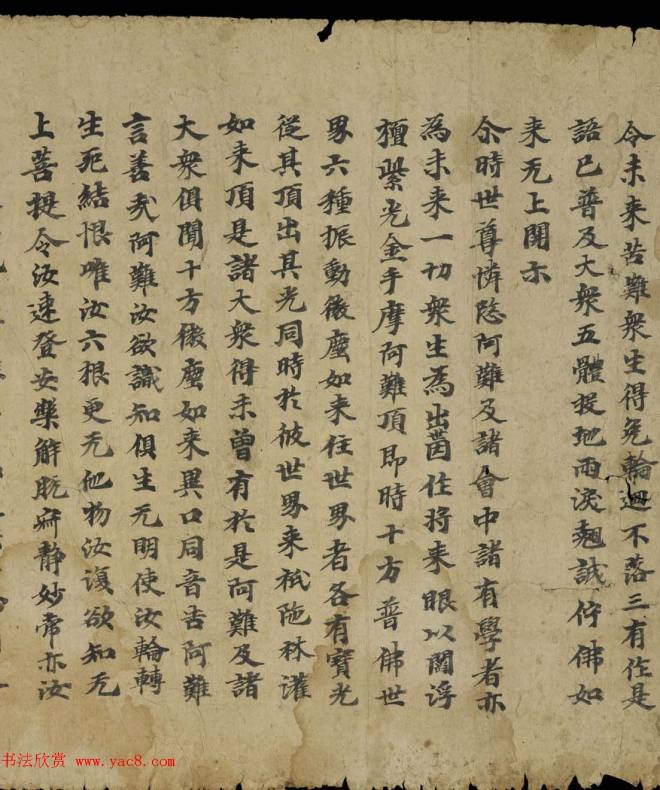 令未来苦難衆生得免輪迴不落三有作是
語已普及大衆五體投地雨淚翹誠佇佛如
来无上開示
尒時世尊憐愍阿難及諸會中諸有學者亦
為未来一切衆生為出世因住将来眼以閻浮
檀紫光金手摩阿難頂即時十方普佛世
界六種振動微塵如来住世界者各有寶光
從其頂出其光同時於彼世界来祇陁林灌
如来頂是諸大衆得未曾有於是阿難及諸
大衆俱聞十方微塵如来異口同音告阿難
言善我阿難汝欲識知俱生无明使汝輪轉
生死結根唯汝六根更无他物汝復欲知无
上菩提令汝速登安樂解脫寂靜妙常亦汝
书法欣赏 www.yac8.com